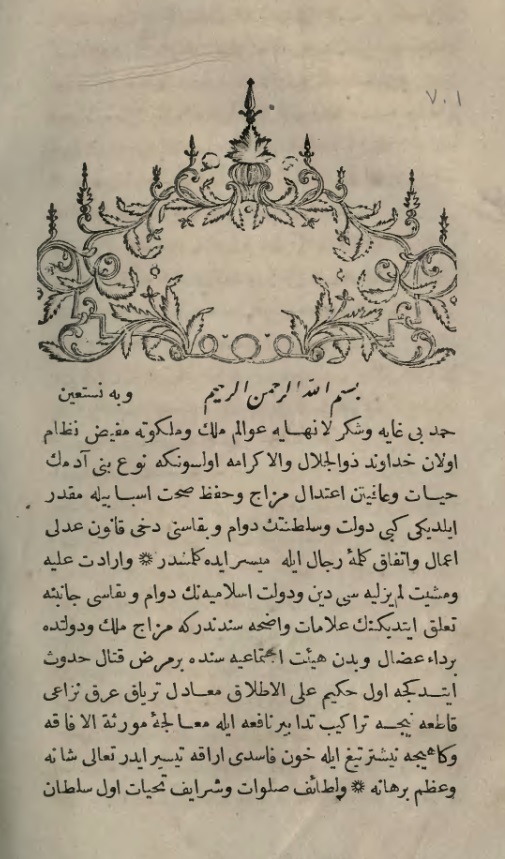 ٧٠١
بسم الله الرحمن الرحيم وبه نستعين
حمد بی غایه وشکر لانهایه عوالم ملك وملکوته مفیض نظام
اولان خداوند ذوالجلال والاکرامه اولسونکه نوع بنی آدمك
حیات وعافیتن اعتدال مزاج وحفظ صحت اسبابیله مقدر
ایلدیکی کبی دولت وسلطنتك دوام وبقاسنی دخی قانون عدلی
اعمال واتفاق کلمهٔ رجال ایله میسر ایده کلمشدر ❋ وارادت علیه
ومشیت لم یزلیه سی دین ودولت اسلامیه نك دوام وبقاسی جانبنه
تعلق ایتدیکنك علامات واضحه سندندرکه مزاج ملك ودولتده
برداء عضال وبدن هیئت اجتماعیه سنده برمرض قتال حدوث
ایتدکجه اول حکیم علی الاطلاق معادل تریاق عرق نزاعی
قاطعه نیجه تراکیب تدابیر نافعه ایله معالجهٔ مورثة الافاقه
وکاهیجه نیشتر تیغ ایله خون فاسدی اراقه تیسیر ایدر تعالی شانه
وعظم برهانه ❋ ولطائف صلوات وشرایف تحیات اول سلطان